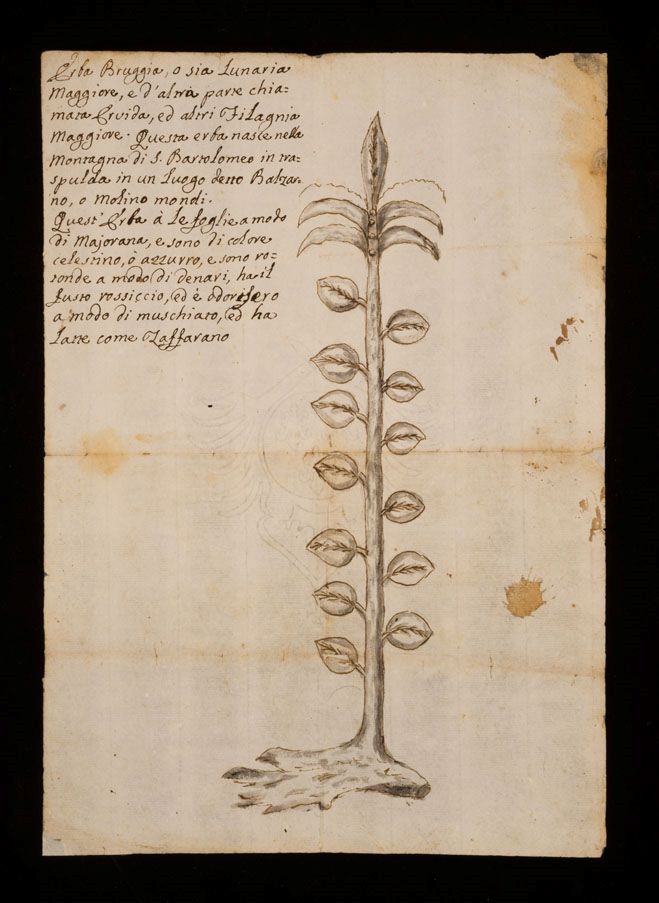 Erba Bruggia, o sia Lunaria
Maggiore, e d'altra parte chia-
mata Ervida, ed altri Filagnia
Maggiore. Questa erba nasce nella
Montagna di S. Bartolomeo in tra-
spulda in un luogo detto Balzar-
no, o Molino mondi.
Quest'Erba à le foglie a modo
di Majorana, e sono di colore
celestino, ò azzurro, e sono ro-
tonde a modo di denari, ha il
fusto rossiccio, ed è odorifero
a modo di muschiato, ed ha
latte come Zaffarano